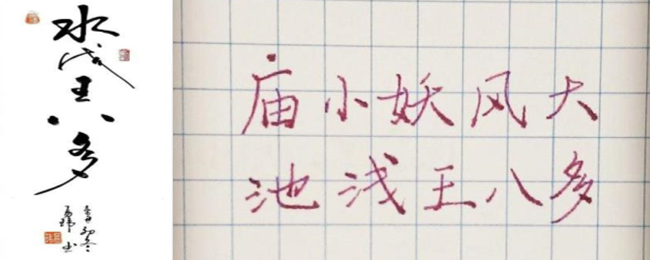 水浅王八多
庙小妖风大
池浅王八多